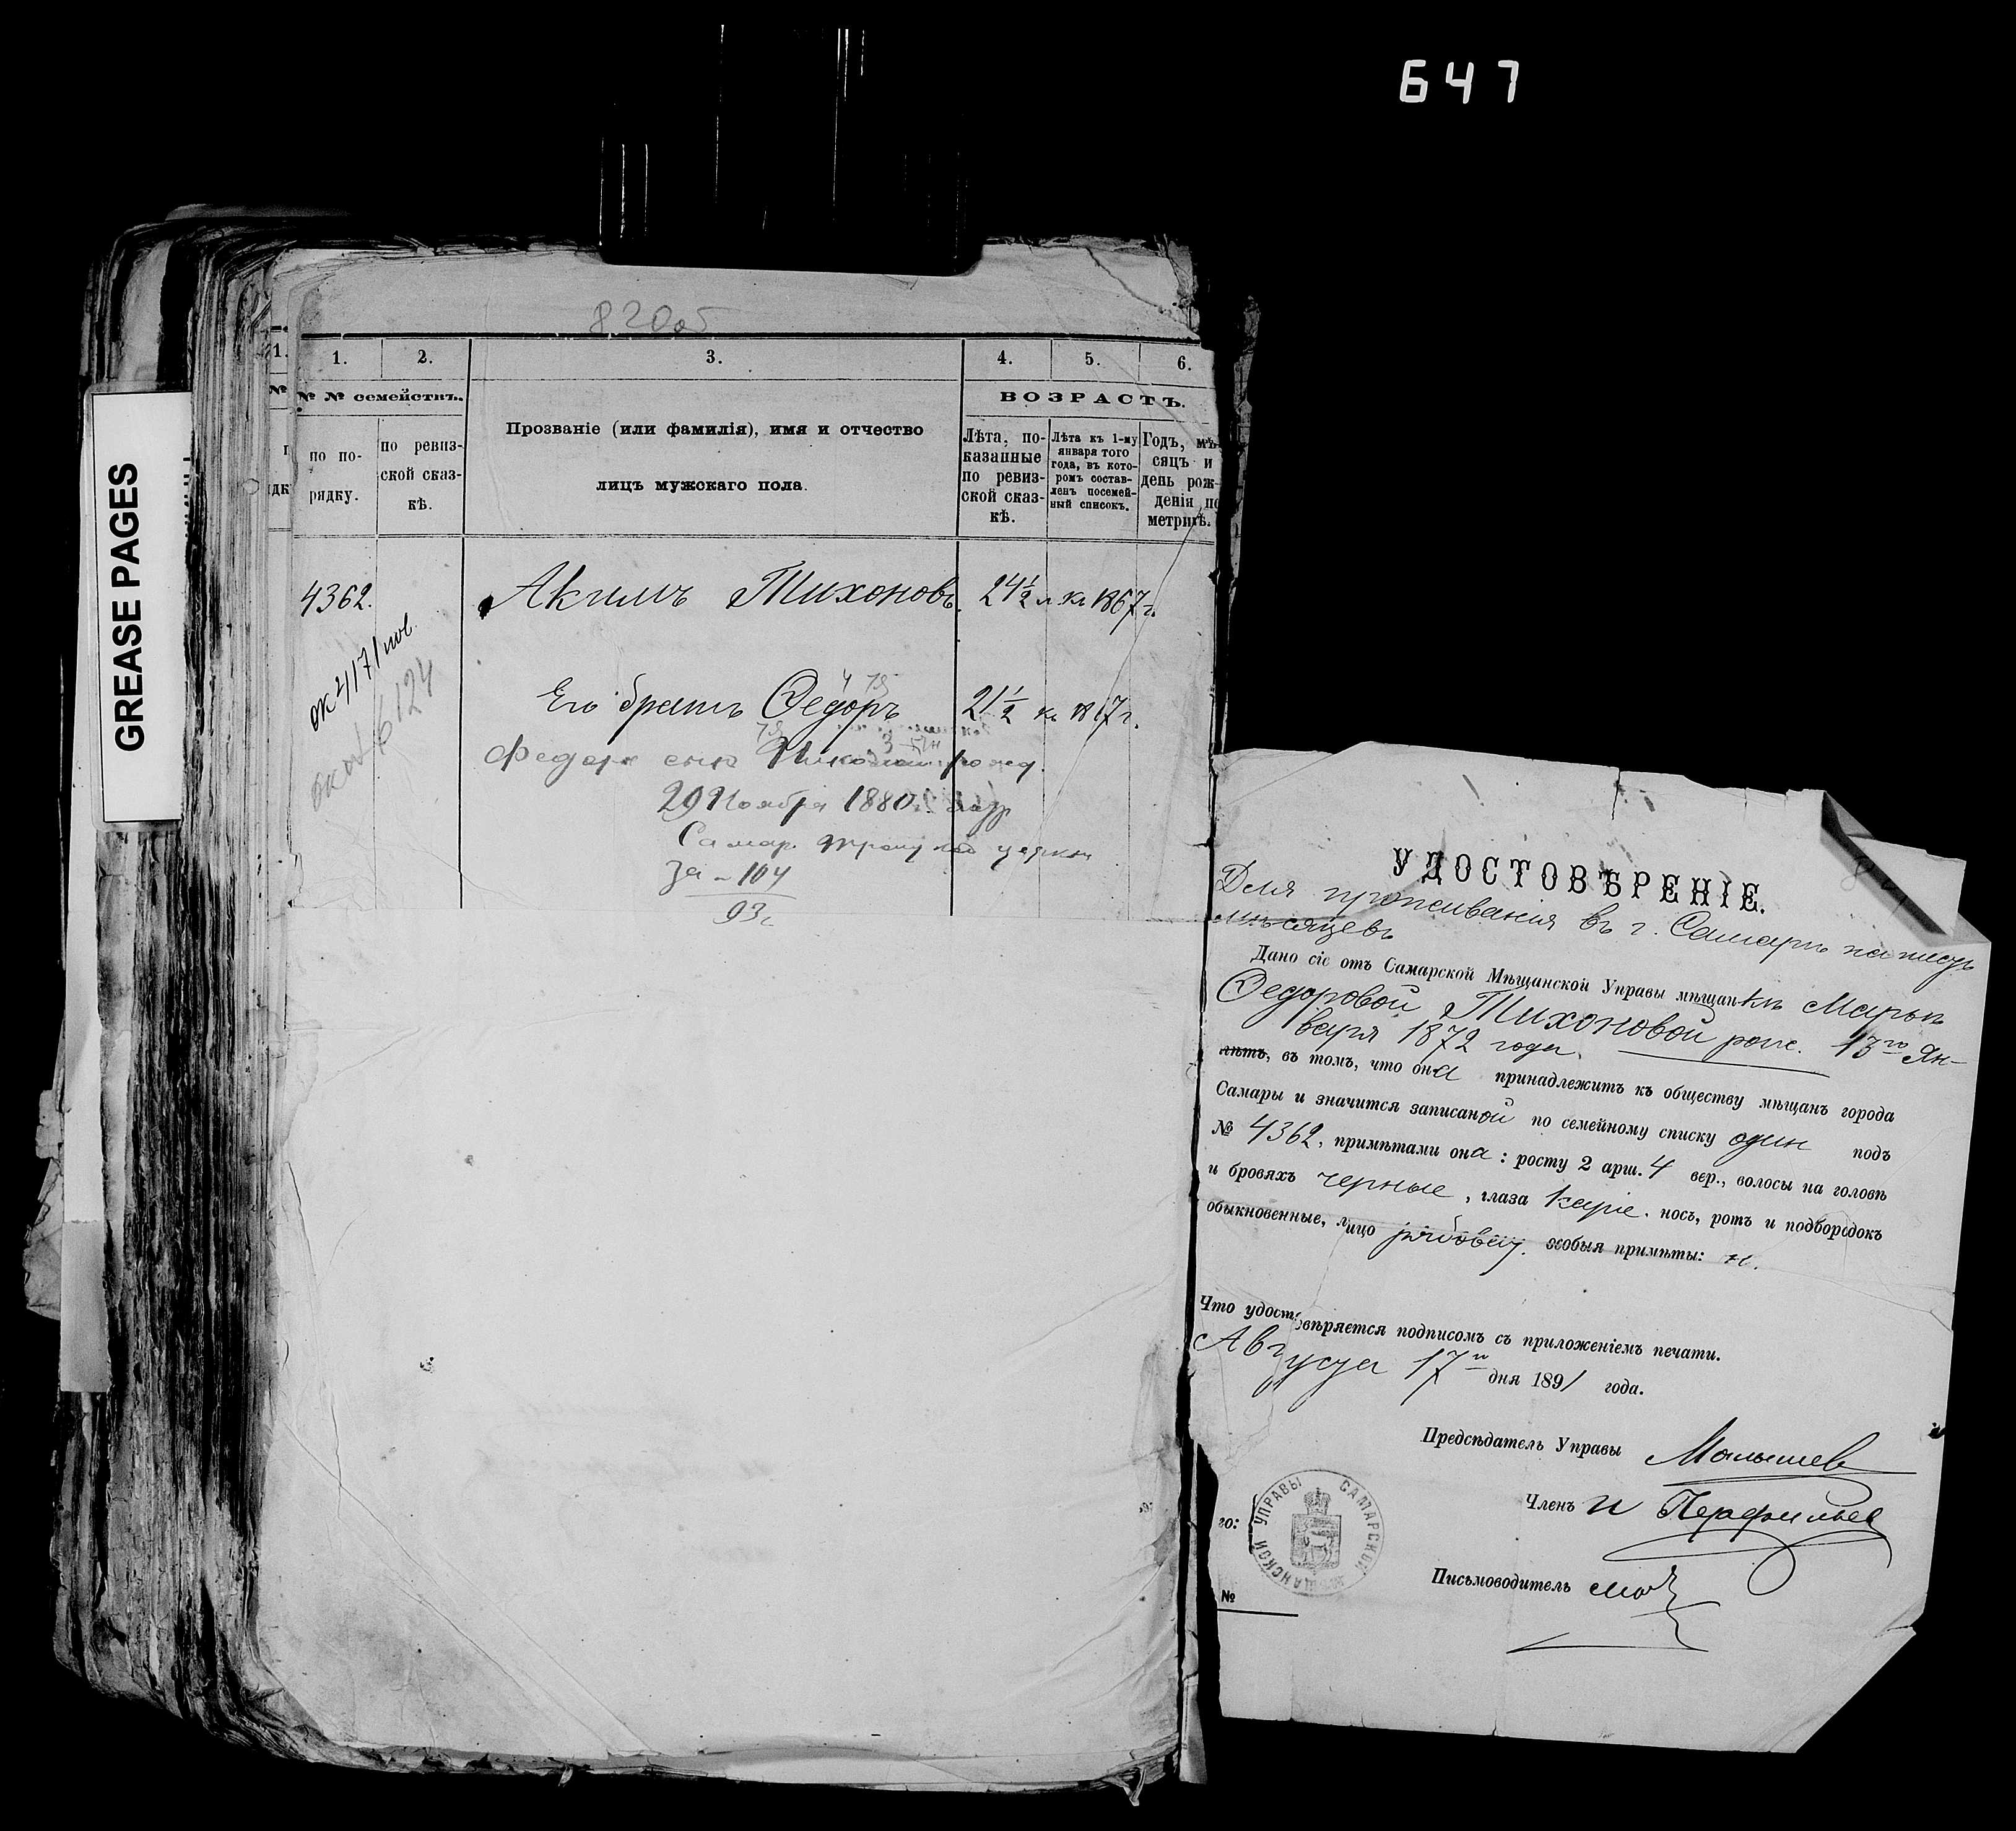 647
GREASE PAGES
820об
1. 2. 3. 4. 5. 6.
№ № семействъ.
по по-
рядку.
по ревиз-
ской сказ-
кѣ.
Прозваніе (или фамилія), имя и отчество
лицъ мужскаго пола.
ВОЗРАСТЪ.
Лѣта, по-
казанные
по ревиз-
ской сказ-
кѣ.
Лѣта къ 1-му
января того
года, въ кото-
ромъ состав-
ленъ посемей-
ный списокъ.
Годъ, мѣ-
сяцъ и
день рож-
денія по
метрикѣ.
4362. Акимъ Тихоновъ. 24½ л к 1867 г.
6124
Его братъ Ѳедоръ 21½ к 1867 г.
Федора сын Николай рожд.
29 Ноября 1880 г.
Самар. церкви
За - 104
93 г
УДОСТОВѢРЕНІЕ.
Для проживанія въ г. Самарѣ на шесть
мѣсяцевъ
Дано сіе отъ Самарской Мѣщанской Управы мѣщанкѣ Марьѣ
Ѳедоровой Тихоновой рожд. 13го Ян-
варя 1872 года.
лѣтъ, въ томъ, что она принадлежитъ къ обществу мѣщанъ города
Самары и значится записаной по семейному списку один подъ
№ 4362, примѣтами она: росту 2 арш. 4 вер., волосы на головѣ
и бровяхъ черные, глаза каріе. носъ, ротъ и подбородокъ
обыкновенные, лицо рябоват. особыя примѣты: н.
Что удостовѣряется подписомъ съ приложеніемъ печати.
Августа 17го дня 1891 года.
Предсѣдатель Управы Малышев
Членъ И Перфильев
Письмоводитель
го:
САМАРСКОЙ МѢЩАНСКОЙ УПРАВЫ
№